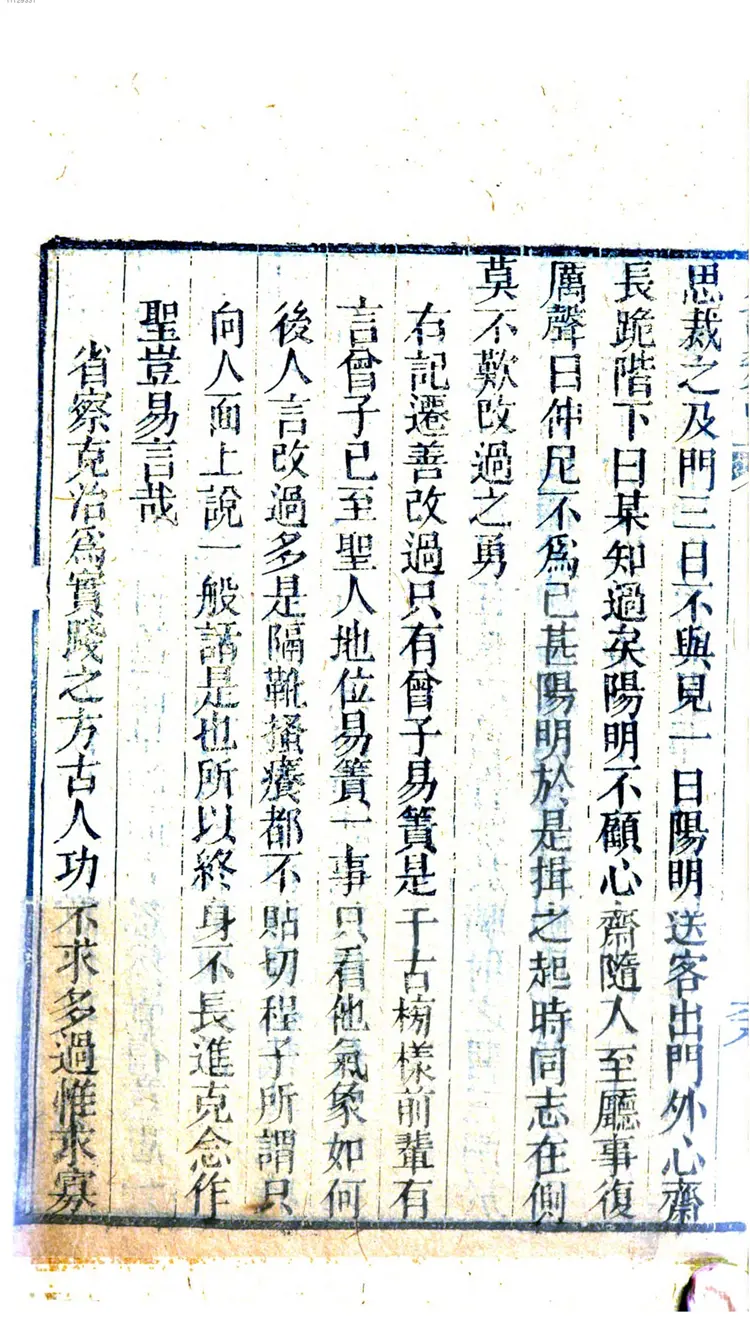 思裁之及門三日不與見一日陽明送客出門外心齋
長跪階下曰某知過矣陽明不顧心齋隨人至廳事復
厲聲曰仲尼不為已甚陽明於是揖之起時同志在側
莫不歎改過之勇
右記遷善改過只有曾子易簀是千古榜樣前輩有
言曾子已至聖人地位易簀一事只看他氣象如何
後人言改過多是隔靴搔癢都不貼切程子所謂只
向人面上說一般話是也所以終身不長進克念作
聖豈易言哉
省察克治為實踐之方古人功不求多過惟求寡